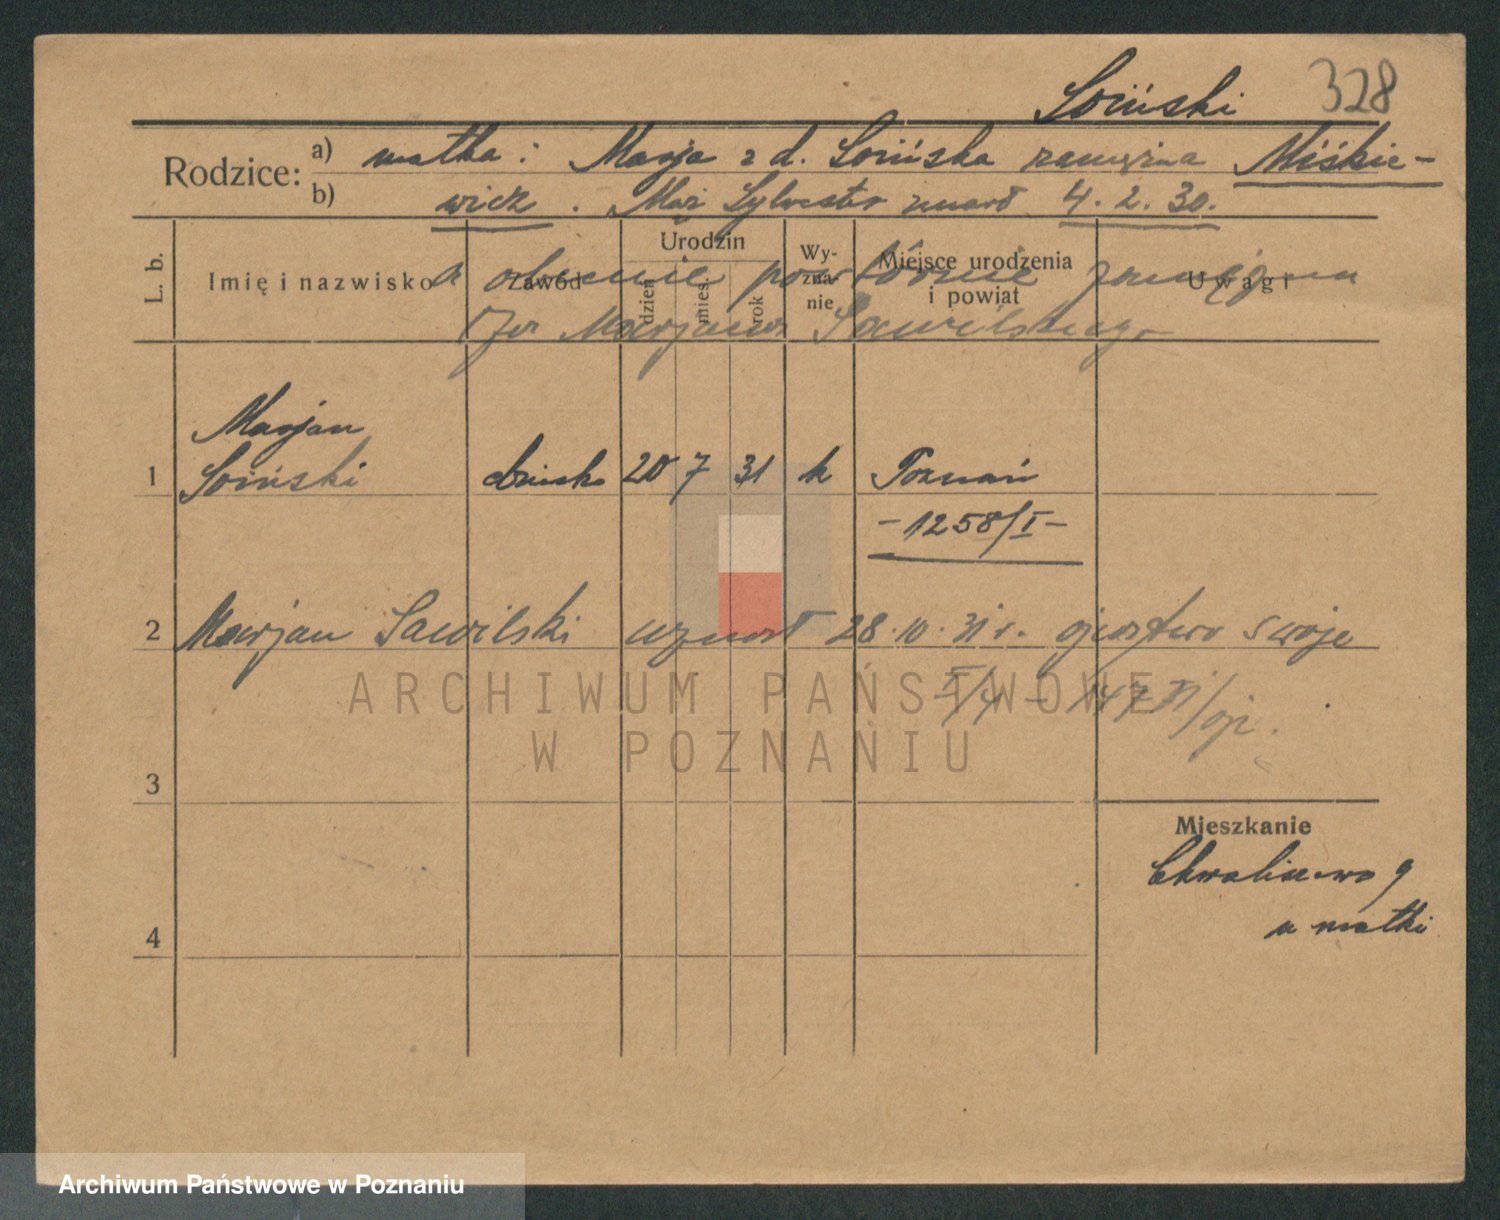 328
Soiński
Rodzice: a) matka: Marja z d. Soińska zamężna Miśkie-
b) wicz. Mąż Sylwester zmarł 4.2.30.
a obecnie powtórnie zamężna
za Marjana Sawilskiego
L. b. Imię i nazwisko Zawód Urodzin dzień mies. rok Wy-zna-nie Miejsce urodzenia i powiat Uwagi
Marjan
1 Soiński dziecko 20 7 31 k Poznań
-1258/I-
2 Marjan Sawilski uznał 28.10.31 r. ojcostwo swoje
ARCHIWUM PAŃSTWOWE
W POZNANIU
3
Mieszkanie
Chwaliszewo 9
u matki
4
Archiwum Państwowe w Poznaniu